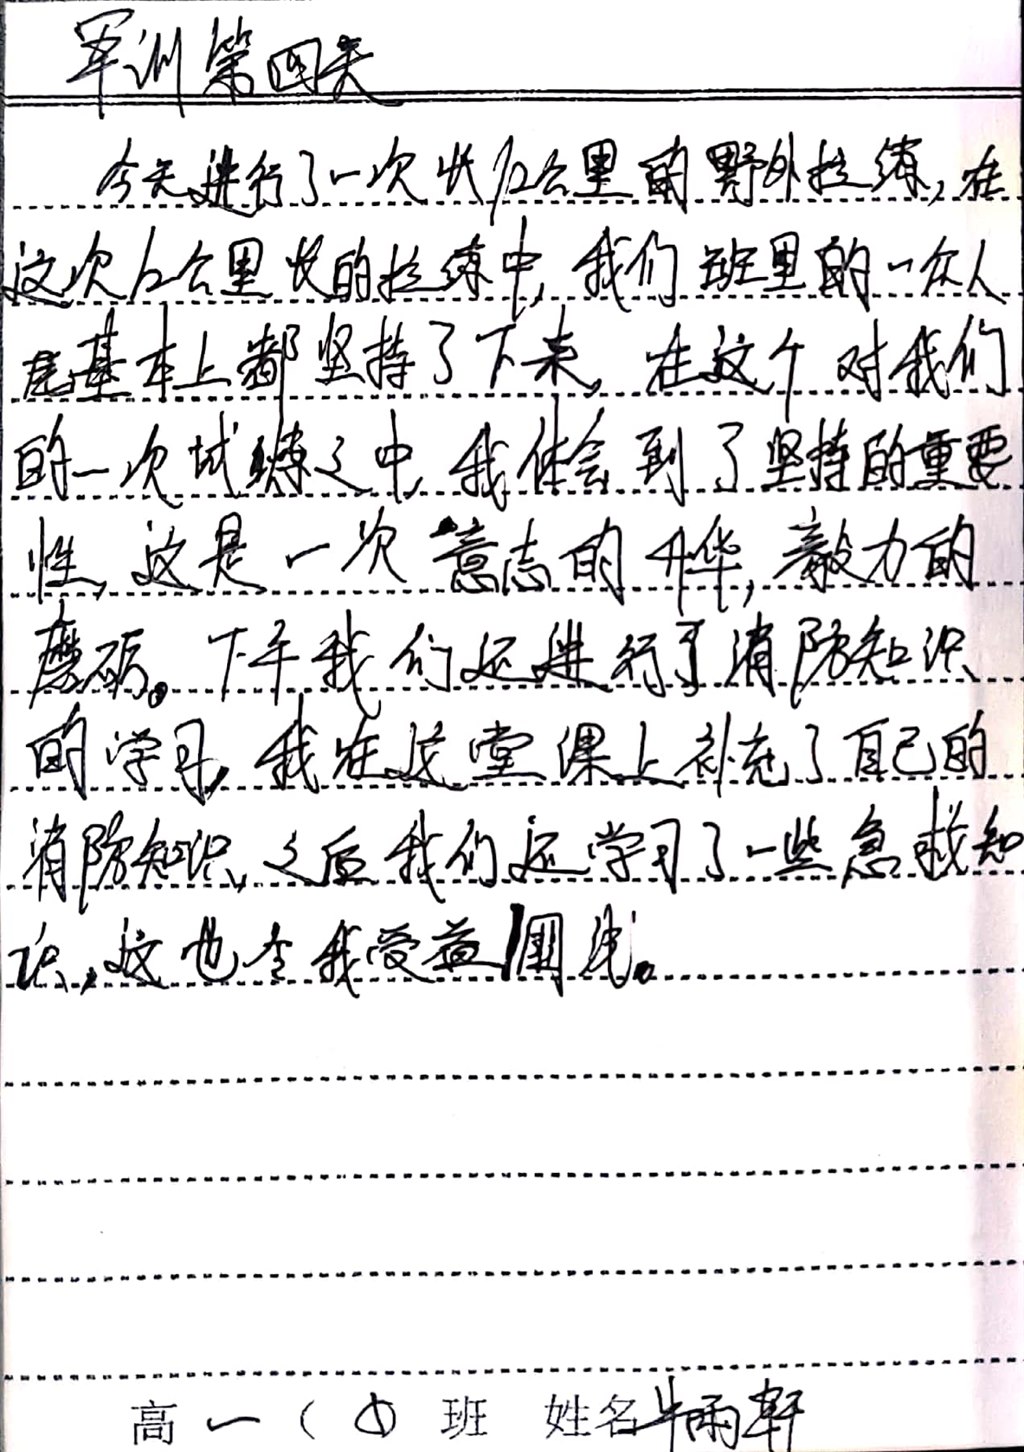 军训第四天
今天进行了一次长12公里的野外拉练,在
这次12公里长的拉练中,我们班里的一众人
基本上都坚持了下来,在这个对我们
的一次试炼之中,我体会到了坚持的重要
性,这是一次意志的升华,毅力的
磨砺。下午我们还进行了消防知识
的学习,我在这堂课上补充了自己的
消防知识,之后我们还学习了一些急救知
识,这也令我受益匪浅。
高一( )班 姓名牛雨轩